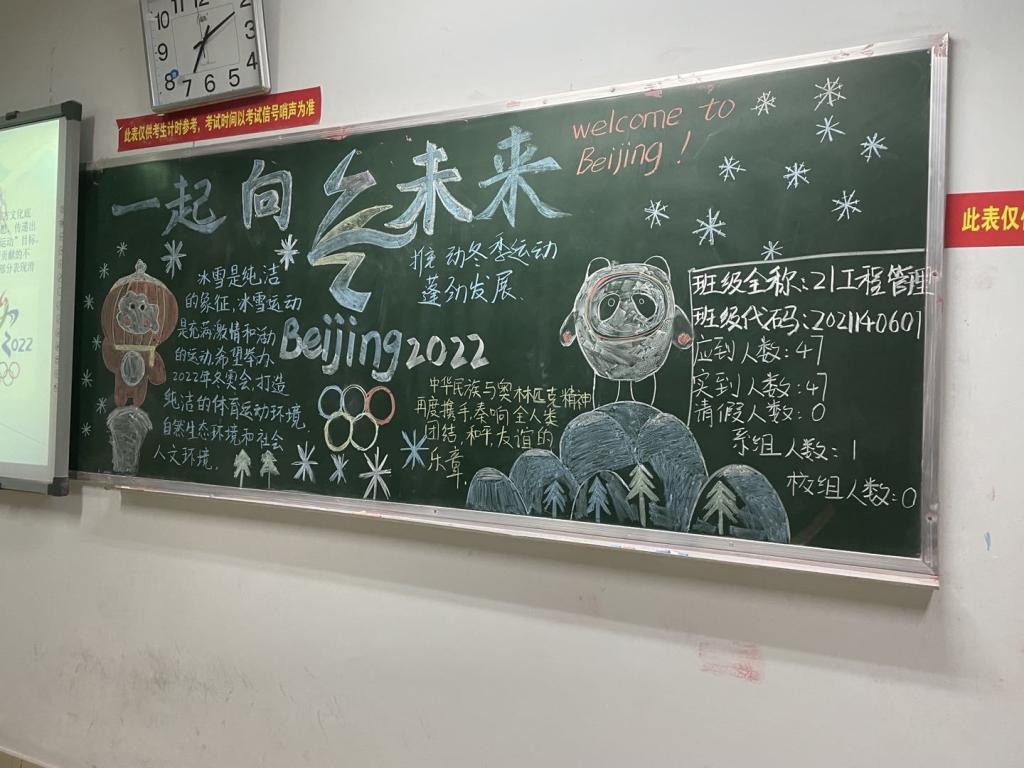 10 11 12 2 3 4 5 6 7 8
此表仅供考生计时参考，考试时间以考试信号哨声为准
一起向未来
welcome to
Beijing !
推动冬季运动
蓬勃发展.
冰雪是纯洁
的象征,冰雪运动
是充满激情和活动
的运动,希望举办、
2022年冬奥会,打造
纯洁的体育运动环境,
自然生态环境和社会
人文环境.
Beijing 2022
中华民族与奥林匹克精神
再度携手奏响全人类
团结,和平友谊的
乐章.
班级全称:21工程管理
班级代码:2021140601
应到人数:47
实到人数:47
请假人数:0
系组人数:1
校组人数:0
此表仅
文化底
传递出
运动"目标.
贡献的不
部分表现滑
2022